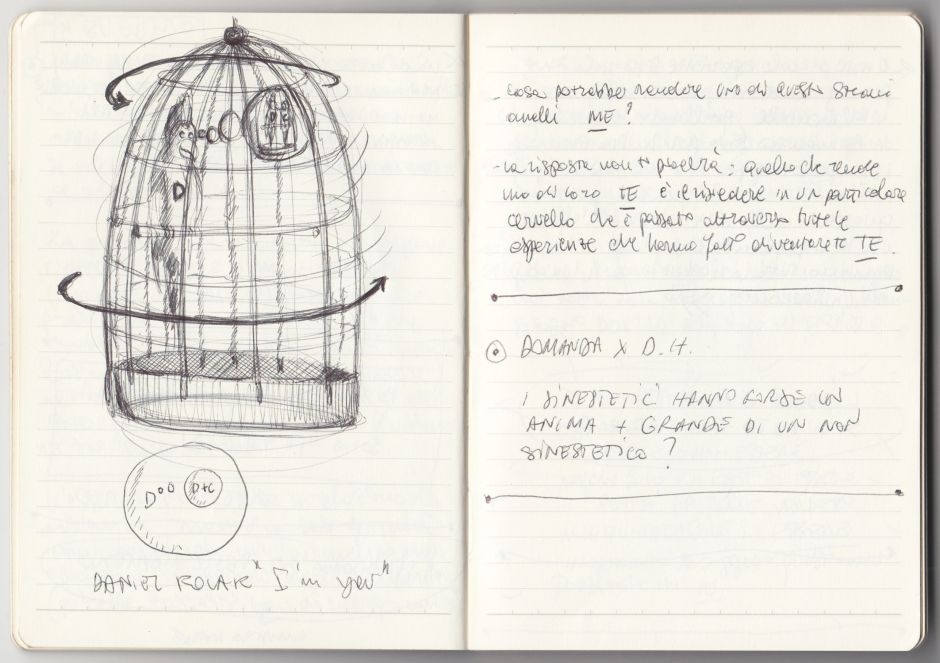 D
D D+C
DANIEL KOLAK "I'm you"
- cosa potrebbe rendere uno di questi strani
anelli ME?
- la risposta non ti piacerà: quello che rende
uno di loro TE è il risiedere in un particolare
cervello che è passato attraverso tutte le
esperienze che hanno fatto diventare te TE
DOMANDA X D.H.
I SINESTETICI HANNO FORSE UN
ANIMA + GRANDE DI UN NON
SINESTETICO?